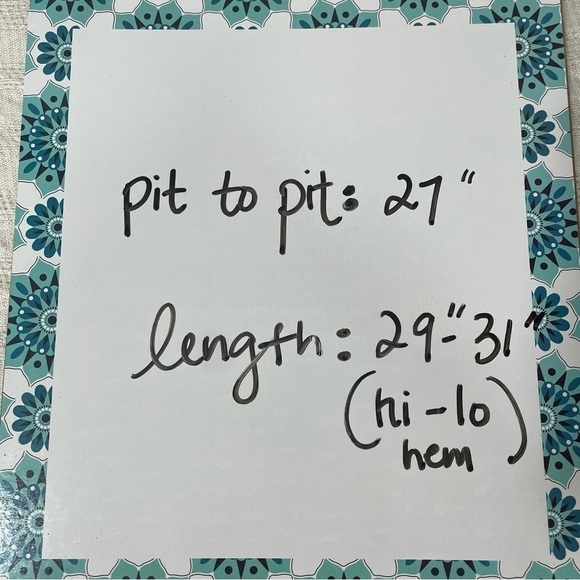 pit to pit: 27"
length: 29"-31"
(hi-lo
hem)